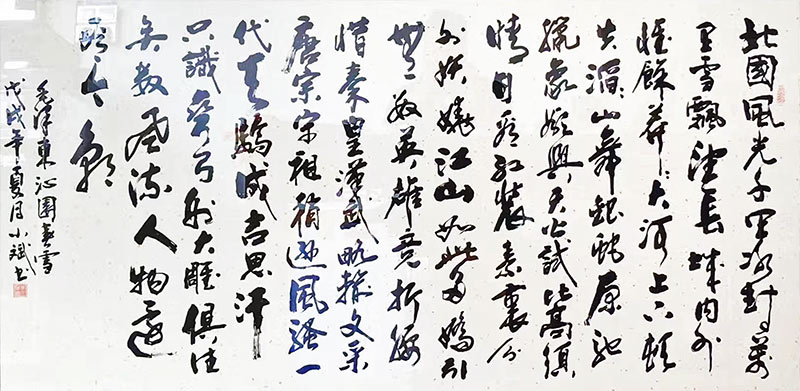 北國風光千里冰封萬
里雪飄望長城内外
惟餘莽莽大河上下頓
失滔滔山舞銀蛇原馳
臘象欲與天公試比高須
晴日看紅裝素裹分
外妖嬈江山如此多嬌引
無數英雄竞折腰
惜秦皇漢武略輸文采
唐宗宋祖稍遜風騷一
代天驕成吉思汗
只識彎弓射大雕俱往
矣數風流人物還
看今朝
毛澤東沁園春雪
戊戌年夏月小斌書